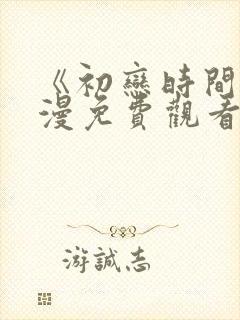 《初戀時間
漫免費觀看
游誠志